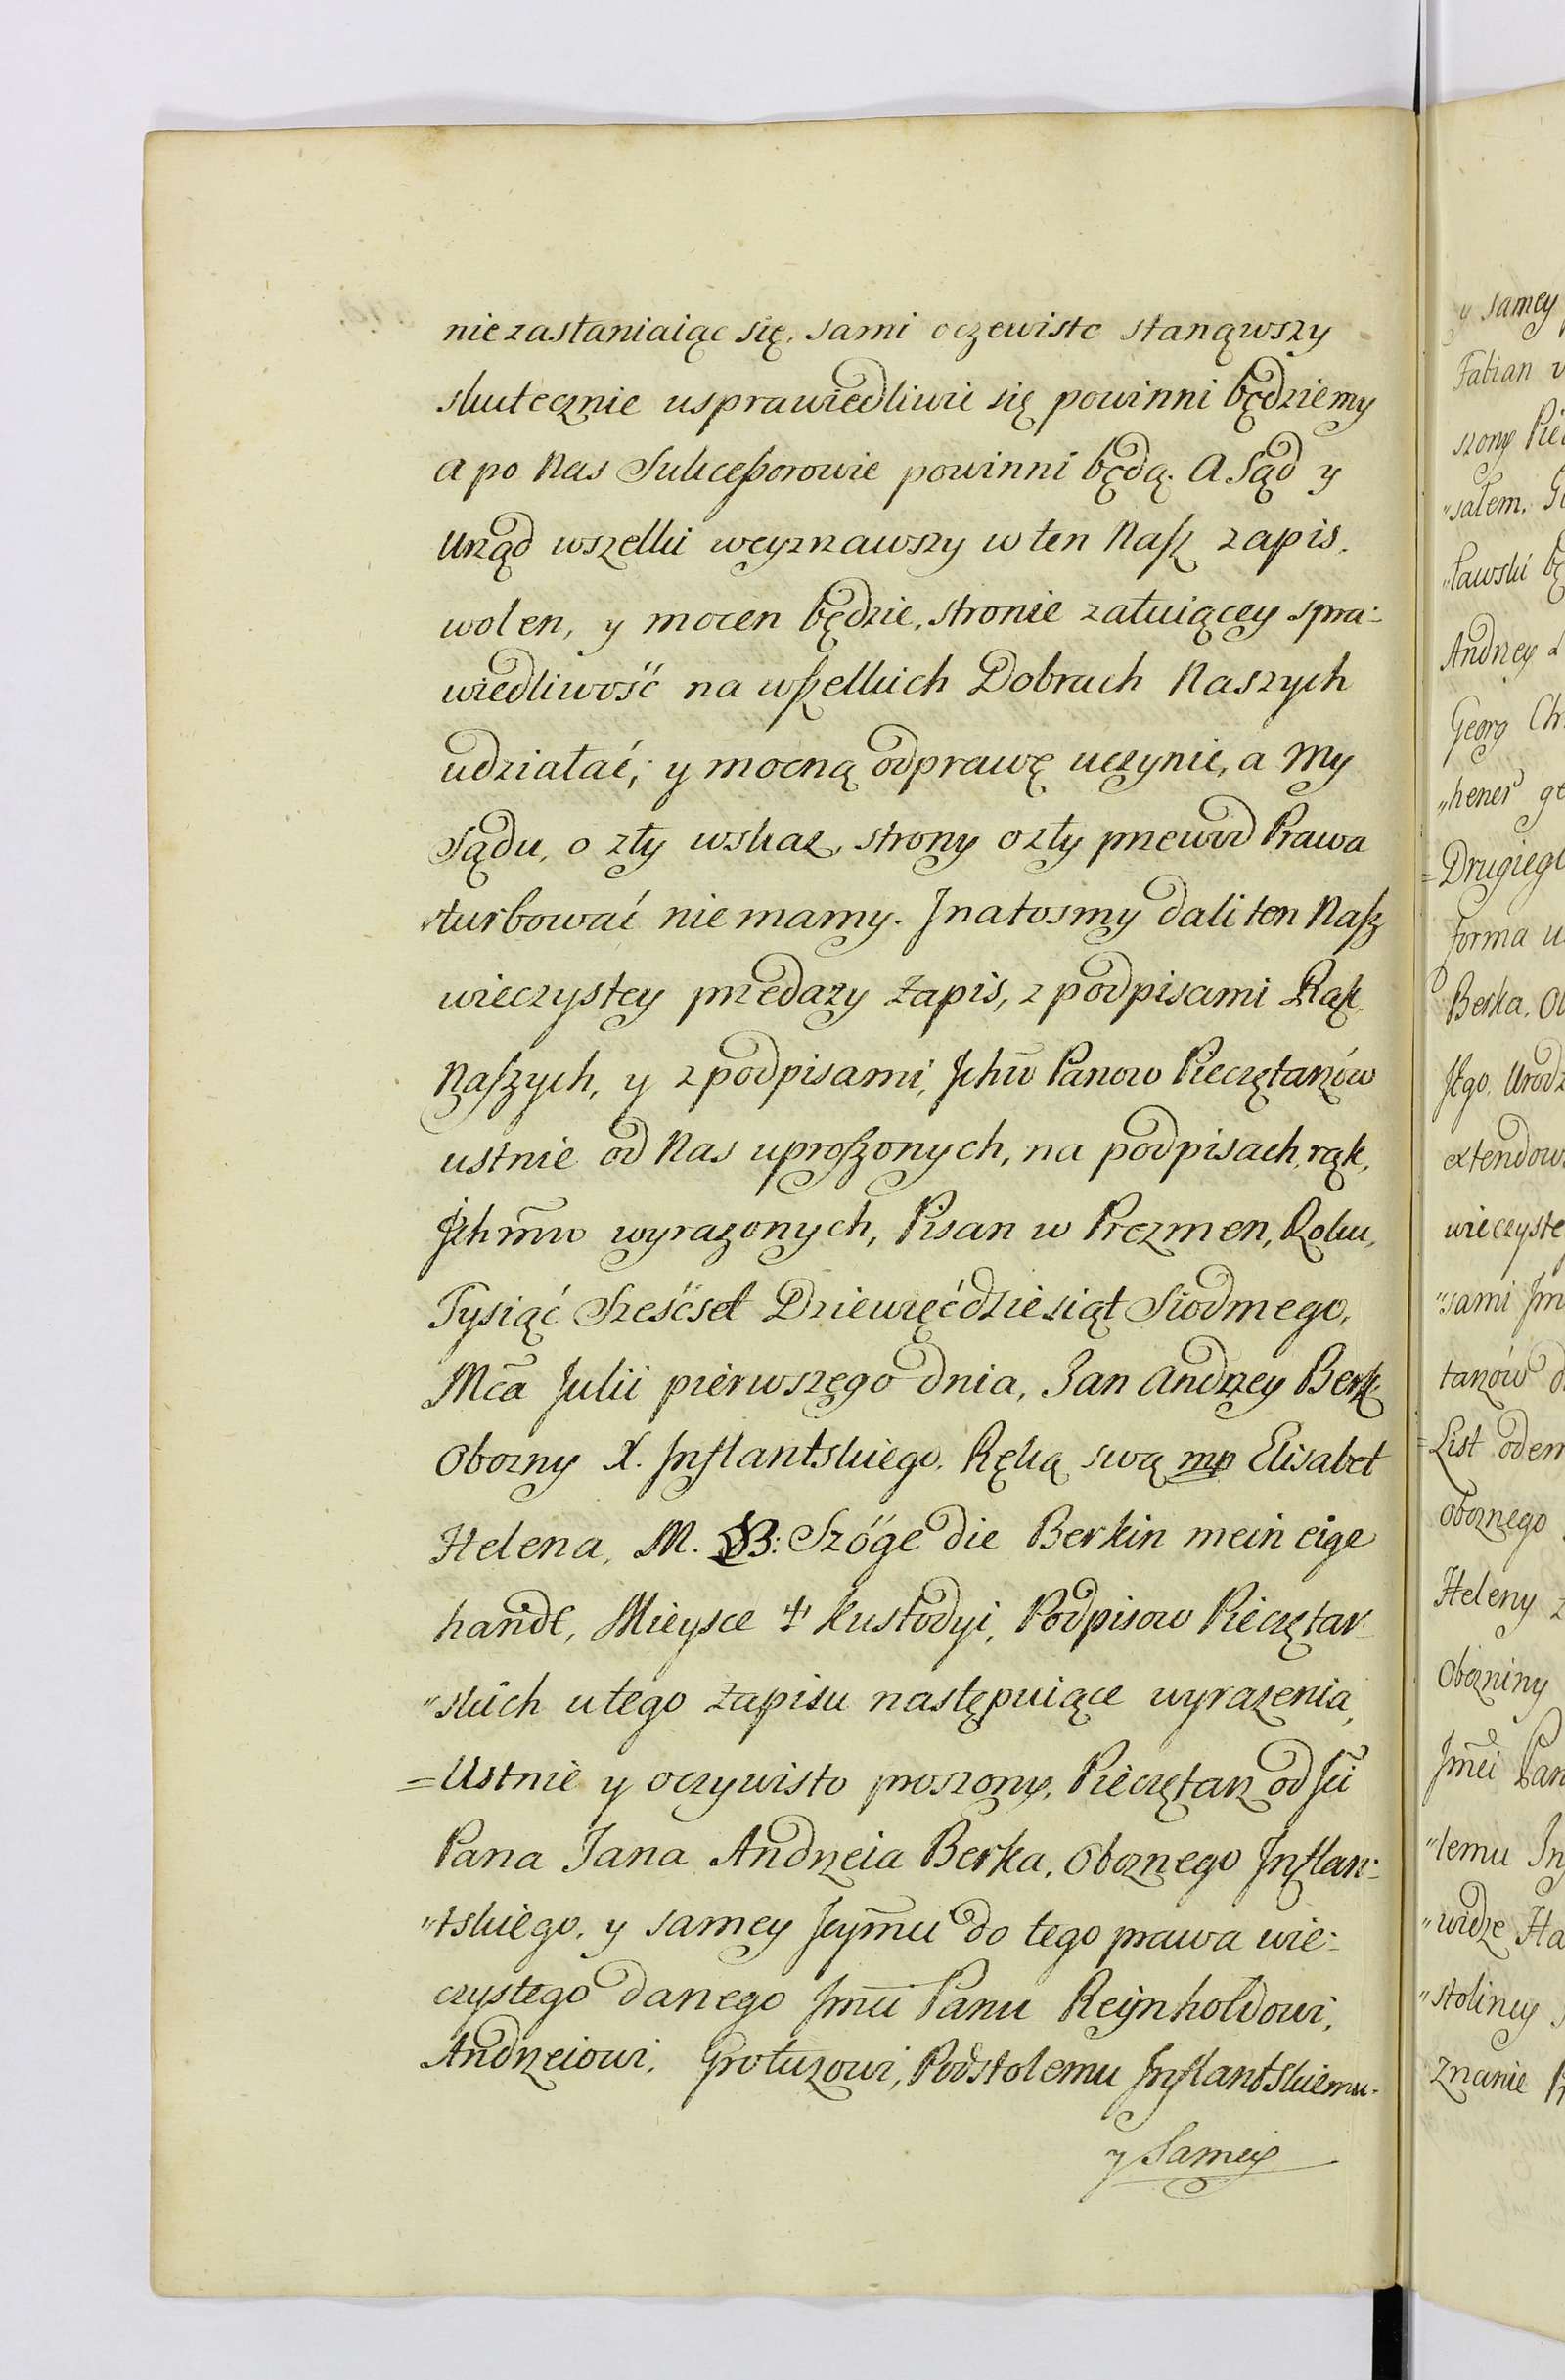 nie zasłaniaiąc się, sami oczewisto stanąwszy
skutecznie usprawiedliwic się powinni będziemy
a po Nas Sukceßorowie powinni będą. A Sąd y
Urząd wszelki weyrzawszy w ten Nasz zapis.
wolen, y mocen będzie, stronie załuiącey spra:
wiedliwość na wszelkich Dobrach Naszych
udziałać; y mocną odprawę uczynic, a My
Sądu, o zły wskaz, strony o zły przewod Prawa
turbować nie mamy. J na tosmy dali ten Nasz
wieczystey przedazy Zapis, z podpisami Rąk
Naszych, y z podpisami, Jchm̃ Panow Pieczętarzów
ustnie od Nas uproszonych, na podpisach rąk,
Jchm̃w wyrazonych, Pisan w Prezmen, Roku,
Tysiąć Sześćset Dziewięćdziesiąt Siodmego,
Mc̃a Julii pierwszego dnia, Jan Andrzey Berk
Obozny X. Inflantskiego. Ręką swą mp Elisabet
Helena, M. B: Szöge die Berkin mein eige
handt, Mieysce Kustodyi, Podpisow Pieczętar:
"skich u tego Zapisu następuiące wyrazenia,
=Ustnie y oczywisto proszony, Pieczętarz od Jm̃
Pana Jana Andrzeia Berka, Oboznego Inflan:
"tskiego, y samey Jeym̃u do tego prawa wie:
czystego danego Jm̃u Panu Reijnholdowi,
Andrzeiowi, Grotuzowi, Podstolemu Inflantskiemu.
y Samey
y samey
Fabian
szony
"sałem.
"ławski
Andrzey
Georg
"hener
=Drugieg
forma
Berka,
Jego, Urodz
extendow
wieczyste
"sami
tarzów
=List odem
oboznego
Heleny
Obozniny
Jm̃ci Pan
"lemu
"widze
"stoliney
znanie